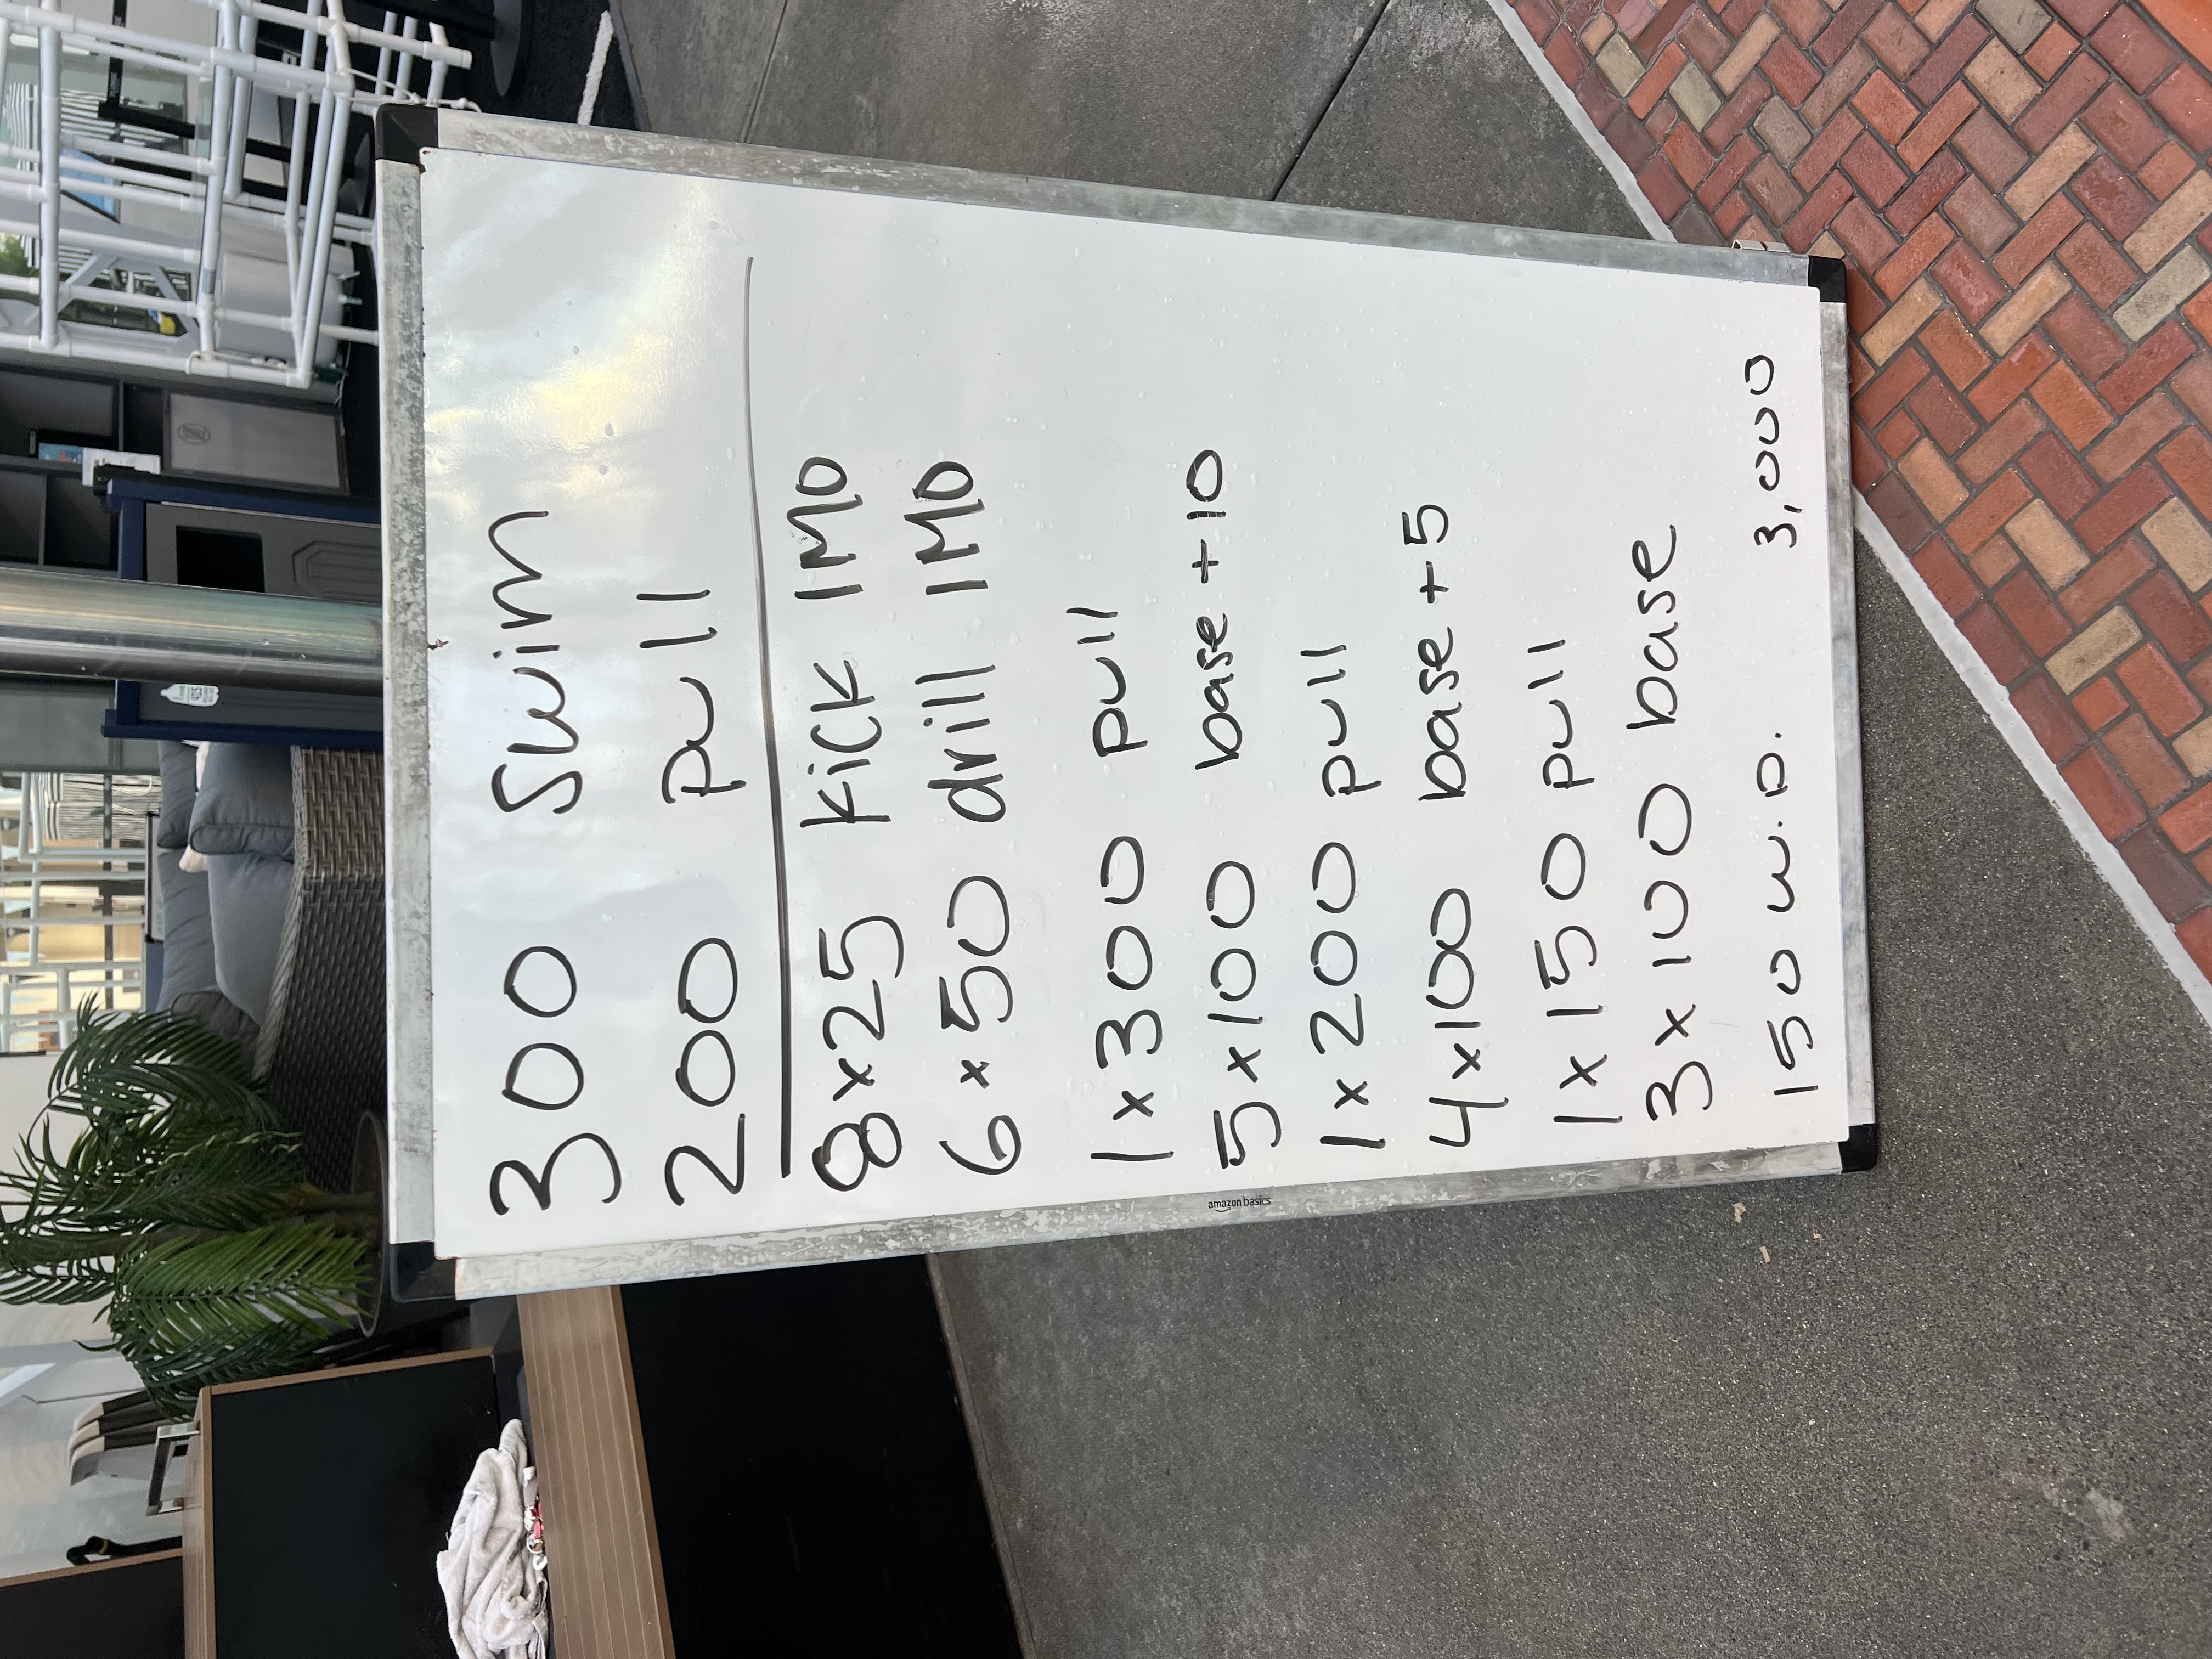 300 Swim
200 pull
8x25 Kick IMO
6x50 drill IMO
1x300 pull
5x100 base +10
1x200 pull
4x100 base +5
1x150 pull
3x100 base
150 W.D. 3,000
amazon basics